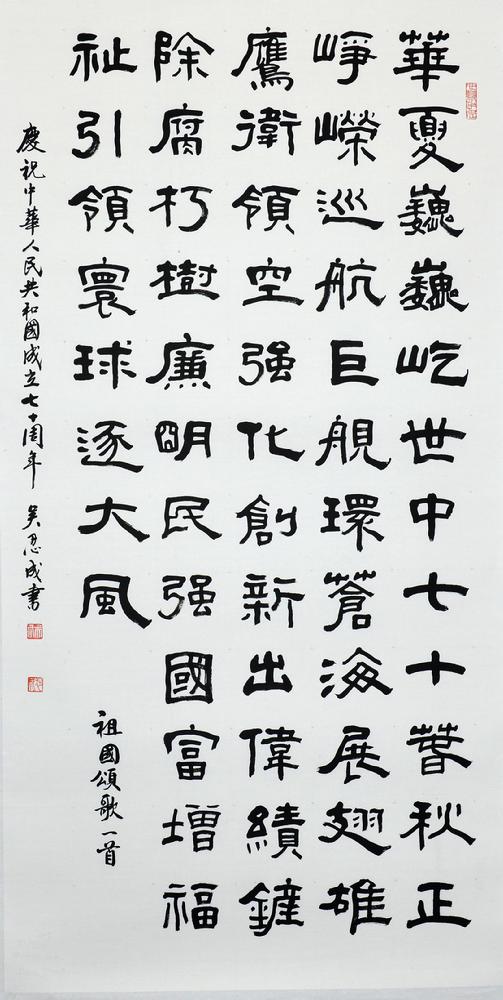 華夏巍巍屹世中七十春秋正
崢嶸巡航巨舰環蒼海展翅雄
鷹衛領空强化創新出偉績鏟
除腐朽樹廉明民强國富增福
祉引領寰球逐大風
祖國頌歌一首
慶祝中華人民共和國成立七十周年 吴思成書